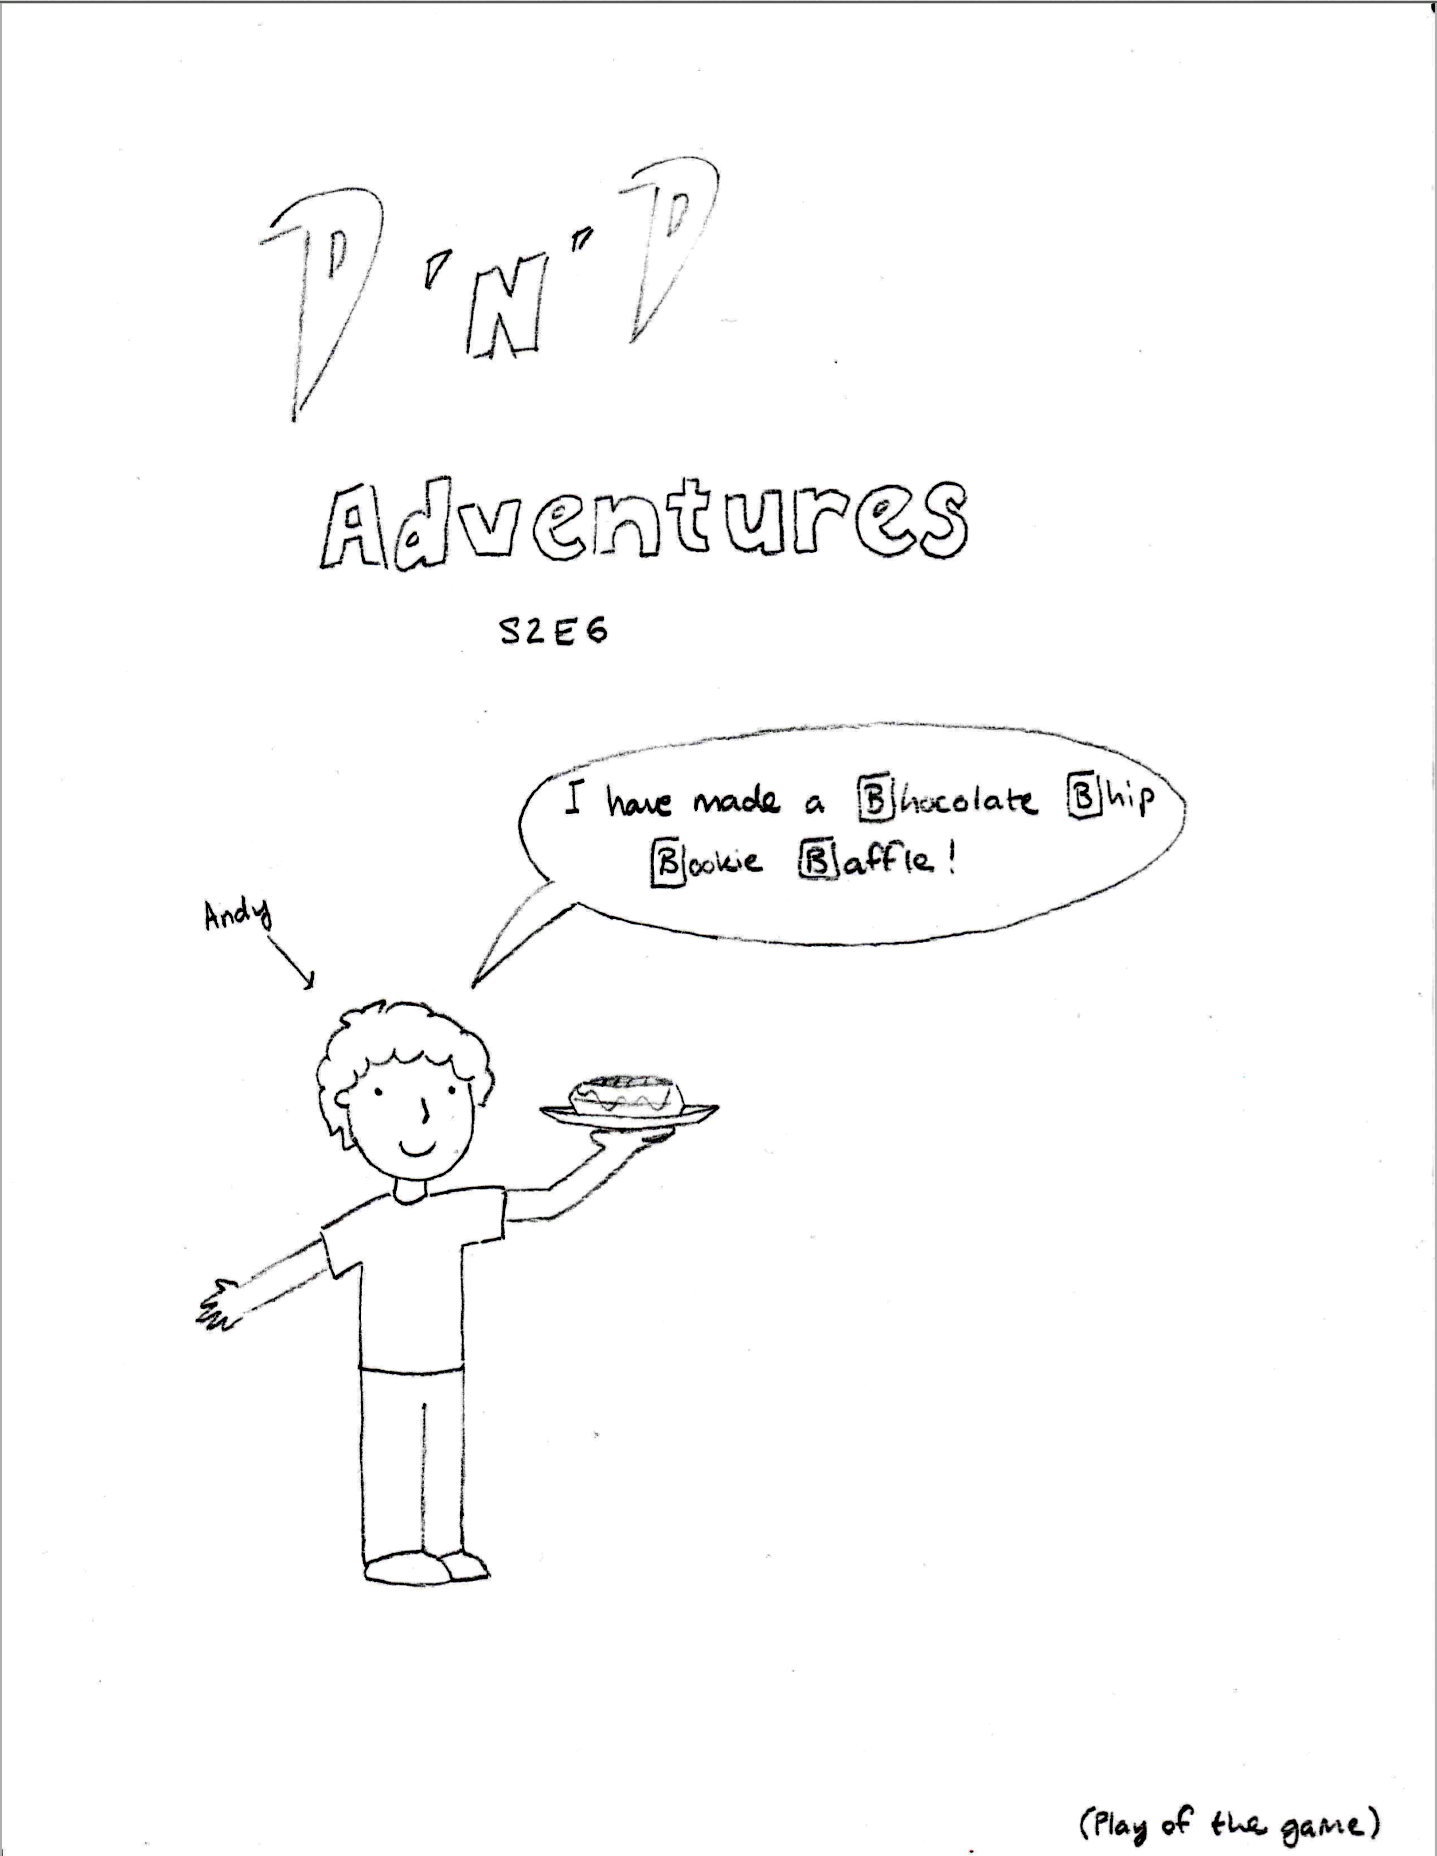 D 'N' D
Adventures
S2E6
I have made a Bhocolate Bhip
Bookie Baffle!
Andy
(Play of the game)